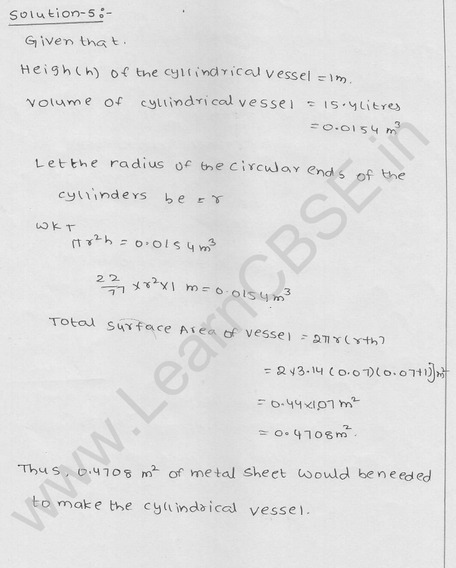 Solution-5:-
Given that.
Heigh(h) of the cyllindrical vessel = 1m.
Volume of cyllindrical vessel = 15.4 litres
= 0.0154 m³
Let the radius of the circular ends of the
cyllinders be = r
WKT
πr²h = 0.0154 m³
22/77 × r² × 1 m = 0.0154 m³
Total Surface Area of vessel = 2πr(r+h)
= 2×3.14 (0.07)(0.07+1)] m²
= 0.44×1.07 m²
= 0.4708 m².
Thus, 0.4708 m² of metal sheet would be needed
to make the cyllindrical vessel.
www.LearnCBSE.in